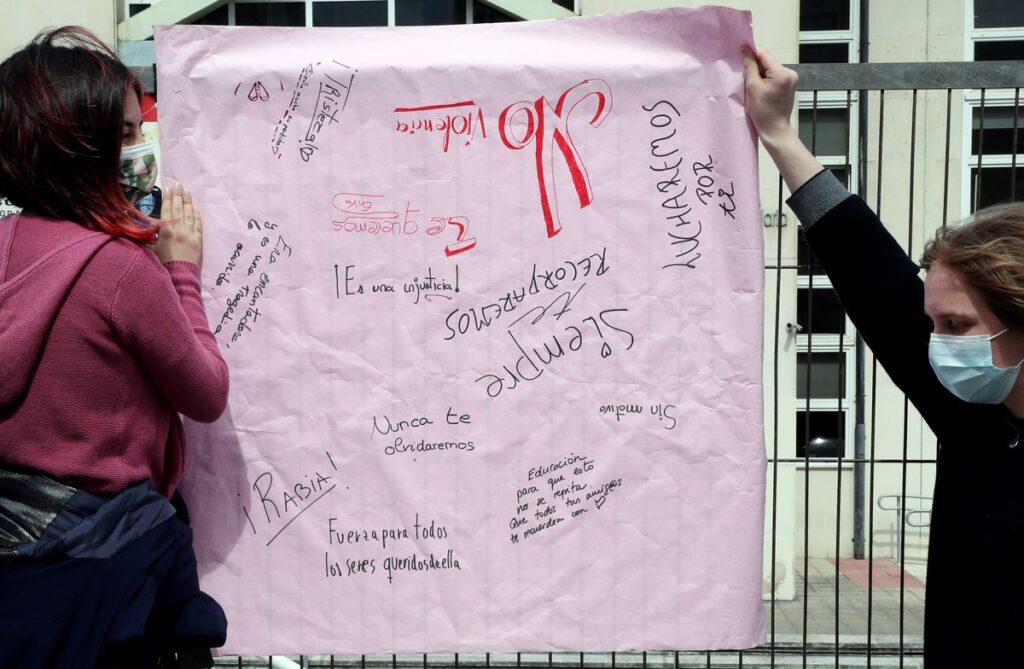 ¡Tristeza!
No
violencia
LUCHAREMOS
POR
ti
Te queremos
Erika
Era encantadora,
y es una tragedia
lo ocurrido
¡Es una injusticia!
Siempre
te
RECORDAREMOS
Sin motivo
Nunca te
olvidaremos
¡RABIA!
Educación
para que esto
no se repita.
Que todos tus amig@s
te recuerden con
Fuerza para todos
los seres queridos de ella